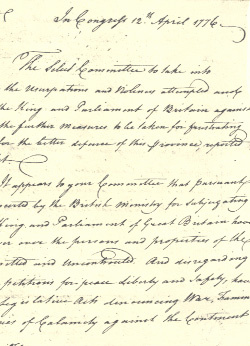 In Congress 12th April 1776
The Select Committee to take into
the Usurpations and Violences attempted and
the King and Parliament of Britain against
the further Measures to be taken for frustrating
for the better defence of this Province, reported
It appears to your Committee that pursuant
by the British Ministry for subjugating
King and Parliament of Great Britain have
over the persons and properties of the
and Uncontrouled. And disregarding
petitions for peace Liberty and Safety, have
Legislative Acts denouncing War, Famine
of Calamity against the Continent